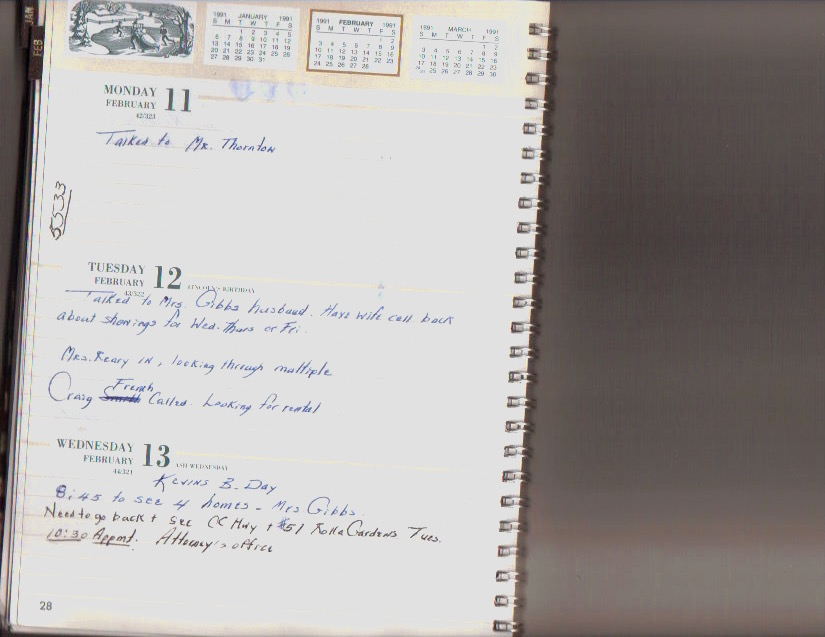 JAN
FEB
1991 JANUARY 1991
S M T W T F S
1 2 3 4 5
6 7 8 9 10 11 12
13 14 15 16 17 18 19
20 21 22 23 24 25 26
27 28 29 30 31
1991 FEBRUARY 1991
S M T W T F S
1 2
3 4 5 6 7 8 9
10 11 12 13 14 15 16
17 18 19 20 21 22 23
24 25 26 27 28
1991 MARCH 1991
S M T W T F S
1 2
3 4 5 6 7 8 9
10 11 12 13 14 15 16
17 18 19 20 21 22 23
25 26 27 28 29 30
MONDAY
FEBRUARY 11
42/323
Talked to Mr. Thornton
5533
TUESDAY
FEBRUARY 12
43/322 LINCOLN'S BIRTHDAY
Talked to Mrs. Gibbs husband. Have wife call back
about showings for Wed. Thurs or Fri.
Mrs. Keary in, looking through multiple
French
Craig Smith Called. Looking for rental
WEDNESDAY
FEBRUARY 13
44/321 ASH WEDNESDAY
Kevins B-Day
8:45 to see 4 homes - Mrs. Gibbs.
Need to go back + see CC Hwy + #51 Rolla Gardens Tues.
10:30 Appmt. Attorney's office
28